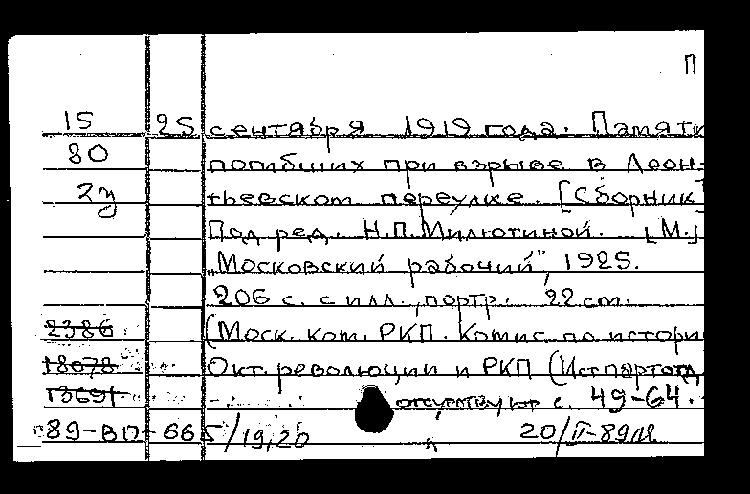 П
15 25 сентября 1919 года. Памяти
80 погибших при взрыве в Леон-
2з тьевском переулке. [Сборник]
Под ред. Н.П. Милютиной. [М.]
„Московский рабочий", 1925.
206 с. с илл., портр. 22 cm.
2386 (Моск. ком. РКП. Комис. по истори
18078 Окт. революции и РКП (Истпартотд
13691 отсутствуют с. 49-64.
89-ВП-665/19,20 20/II-89